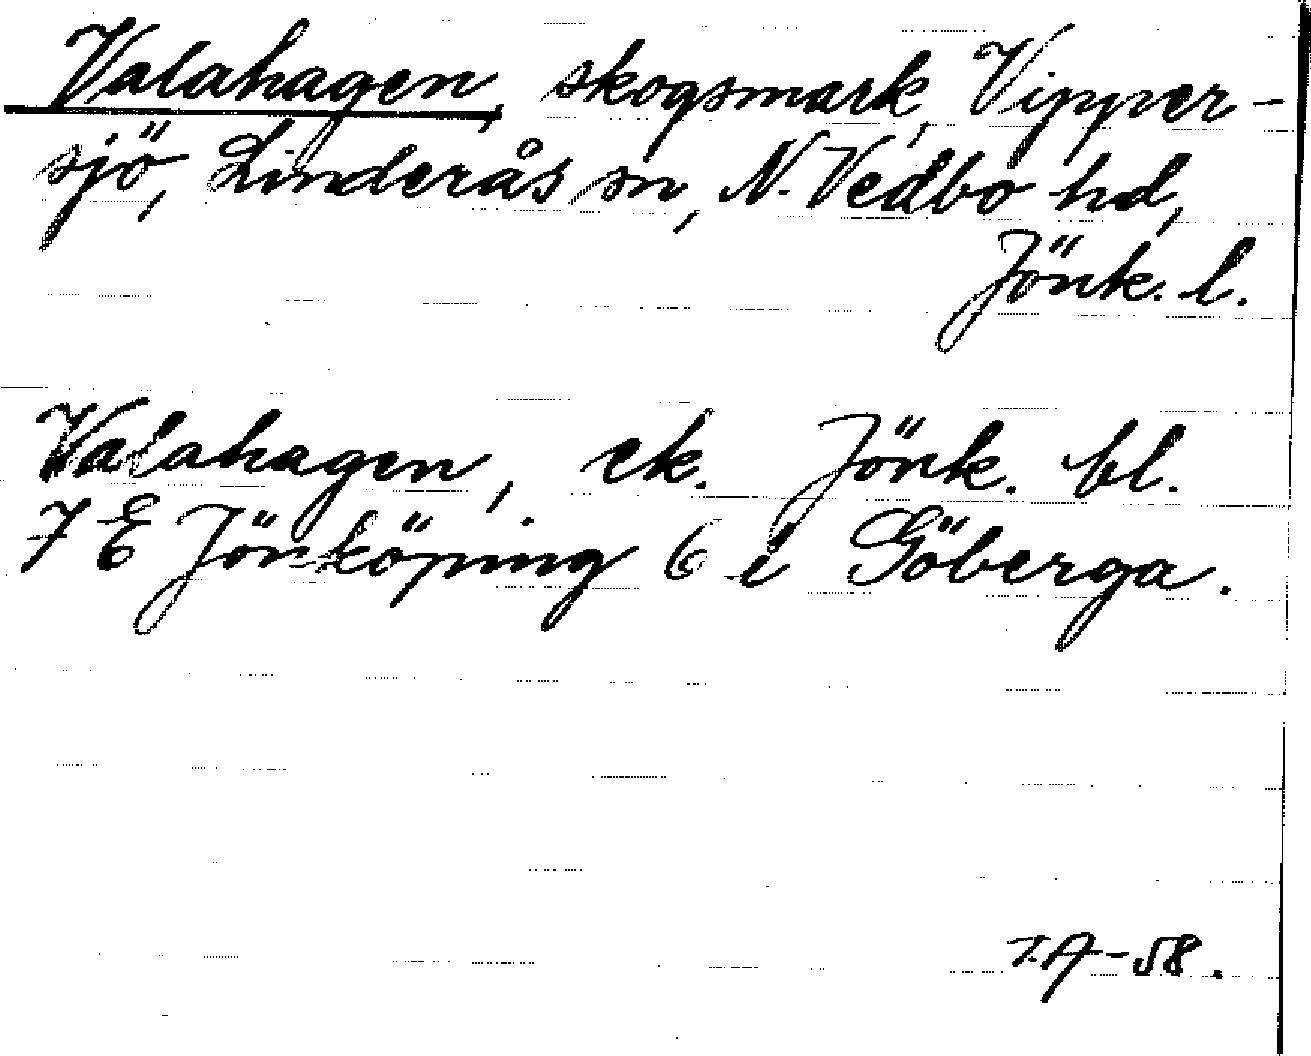 Valahagen, skogsmark, Vipper-
sjö, Linderås sn, N. Vedbo hd,
Jönk. l.
Valahagen, ek. Jönk. bl.
7 E Jönköping 6 i Göberga.
T.A-58.